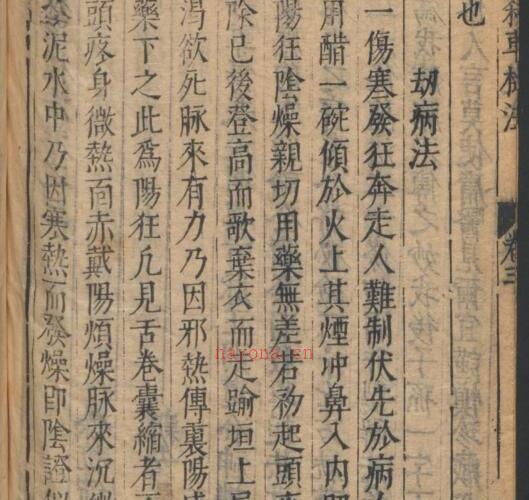 卷三
也
劫病法
一傷寒發狂奔走人難制伏先於病人
用醋一碗傾於火上其煙冲鼻入內
陽狂陰燥親切用藥無差若初起頭
除已後登高而歌棄衣而走踰垣上
渴欲死脉來有力乃因邪熱傳裏陽
藥下之此為陽狂凢見舌卷囊縮者
頭疼身微熱靣赤戴陽煩燥脉來沉
泥水中乃因寒熱而發燥即陰證
narona.cn